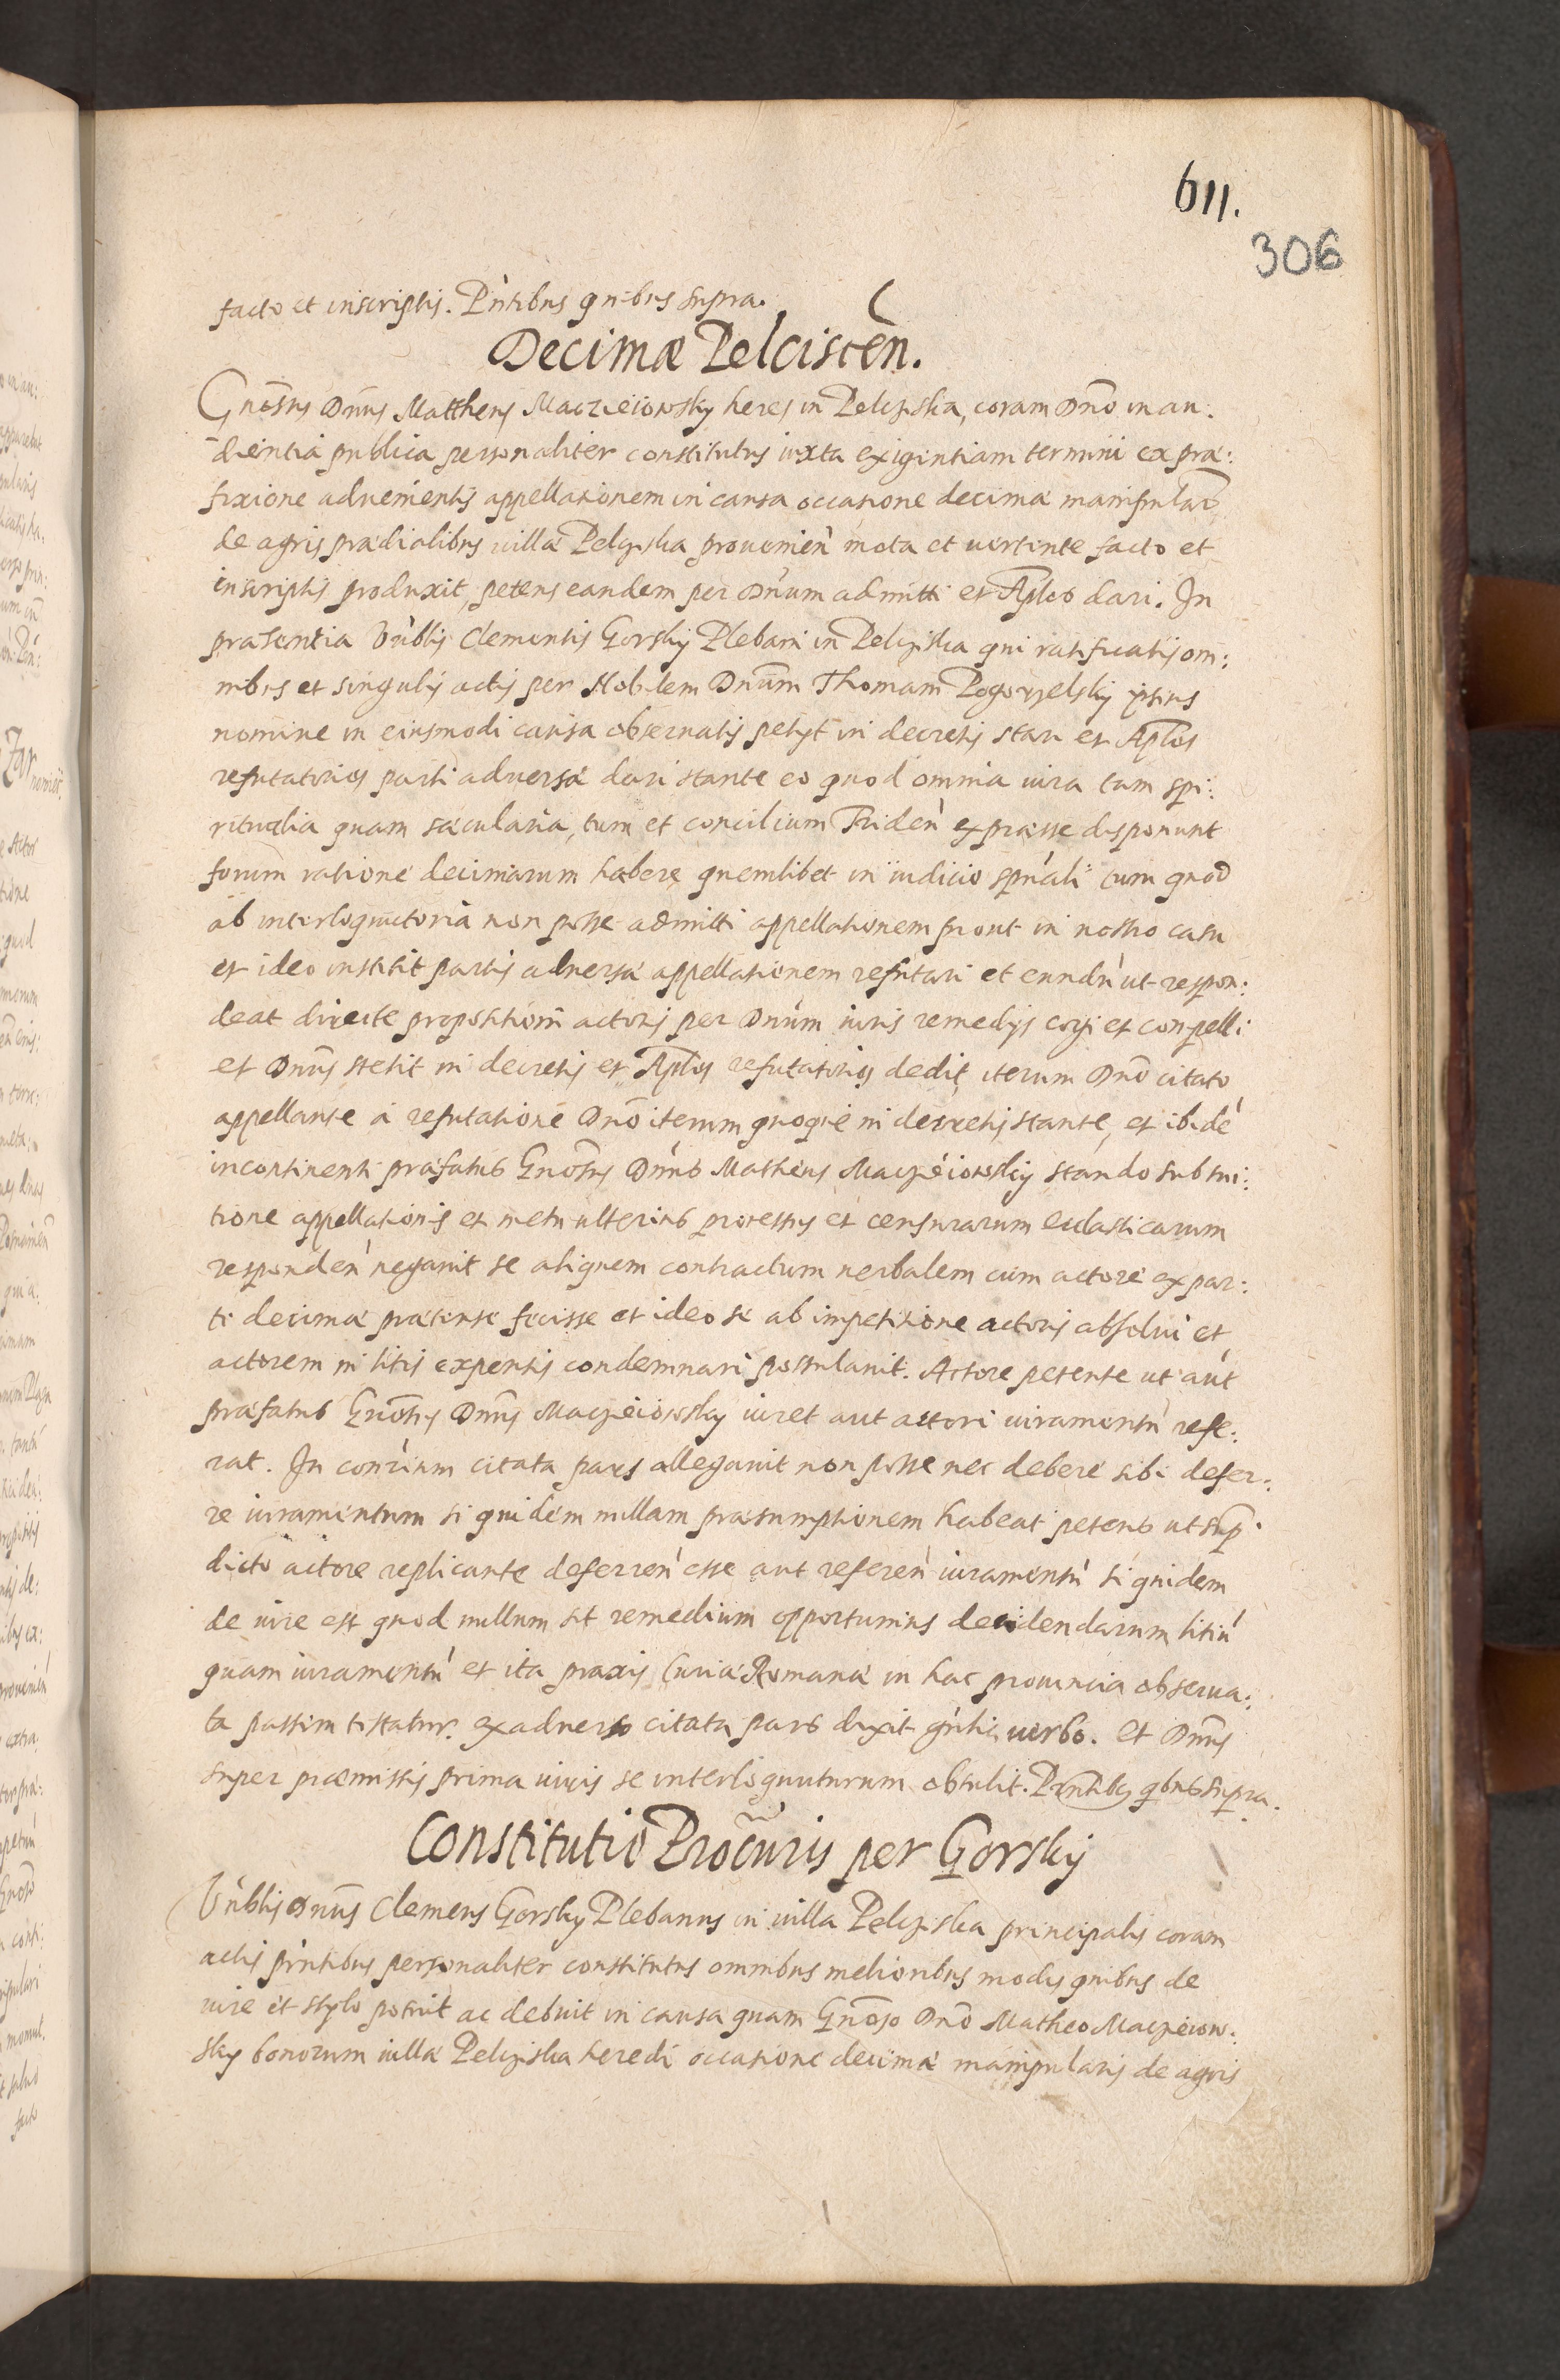 611.
306
facto et inscriptis. Pntibus quibus supra.
Decimæ Pelciscen.
Gnosus Dnus Mattheus Maczieiowsky heres in Pelczyska, coram Dno in au:
dientia publica personaliter constitutus iuxta exigentiam termini ex præ:
fixione aduenientis appellationem in causa occasione decimæ manipular
de agris prædialibus villæ Pelczyska prouenien mota et vertente facto et
inscriptis produxit, petens eandem per Dnum admitti et Aplos dari. In
præsentia Vnblis Clementis Gorsky Plebani in Pelczyska qui ratificatis om:
nibus et singulis actis per Nobilem Dnum Thomam Pogorzelsky ipsius
nomine in eiusmodi causa obseruatis petyt in decretis stari et Aplos
refutatorios parti aduersæ dari stante eo quod omnia iura tam spi:
ritualia quam sæcularia, tum et concilium Triden expræsse disponunt
forum ratione decimarum habere quemlibet in iudicio spuali cum quod
ab interloquutoria non posse admitti appellationem prout in nostro casu
et ideo institit partis aduersæ appellationem refutari et eundu ut respon:
deat directe propositioni actoris per Dnum iuris remedijs cogi et conpelli
et Dnus stetit in decretis et Aplos refutatorios dedit iterum Dno citato
appellante a refutatione Dno iterum quoque in decretis stante, et ibide
incontinenti præfatus Gnosus Dnus Matheus Maczeiowsky stando sub tui:
tione appellationis et metu ulterius processus et censurarum ecclasticarum
responden negauit se aliquem contractum verbalem cum actore ex par:
te decimæ prætense fecisse et ideo se ab impetitione actoris absolui et
actorem in litis expensis condemnari postulauit. Actore petente ut aut
præfatus Gnosus Dnus Maczeiowsky iuret aut actori iuramentu refe:
rat. In conrium citata pars allegauit non posse nec debere sibi defer:
re iuramentum si quidem nullam præsumptionem habeat petens ut sup
dicto actore replicante deferren esse aut referen iuramentu si quidem
de iure est quod nullum sit remedium opportunius decidendarum litiu
quam iuramentu et ita praxis Curiæ Romanæ in hac prouincia obserua:
ta passim testatur. ex aduerso citata pars dixit gnlia verbo. et Dnus
super præmissis prima iuris se interloquuturum obtulit. Pntibus qbus supra.
Constitutio Procuris per Gorsky
Vnblis Dnus Clemens Gorsky Plebanus in villa Pelczyska principalis coram
actis pntibus personaliter constitutus omnibus melioribus modis quibus de
iure et stylo potuit ac debuit in causa quam Gnoso Dno Matheo Maczeiow:
sky bonorum villæ Pelczyska heredi occasione decimæ manipularis de agris